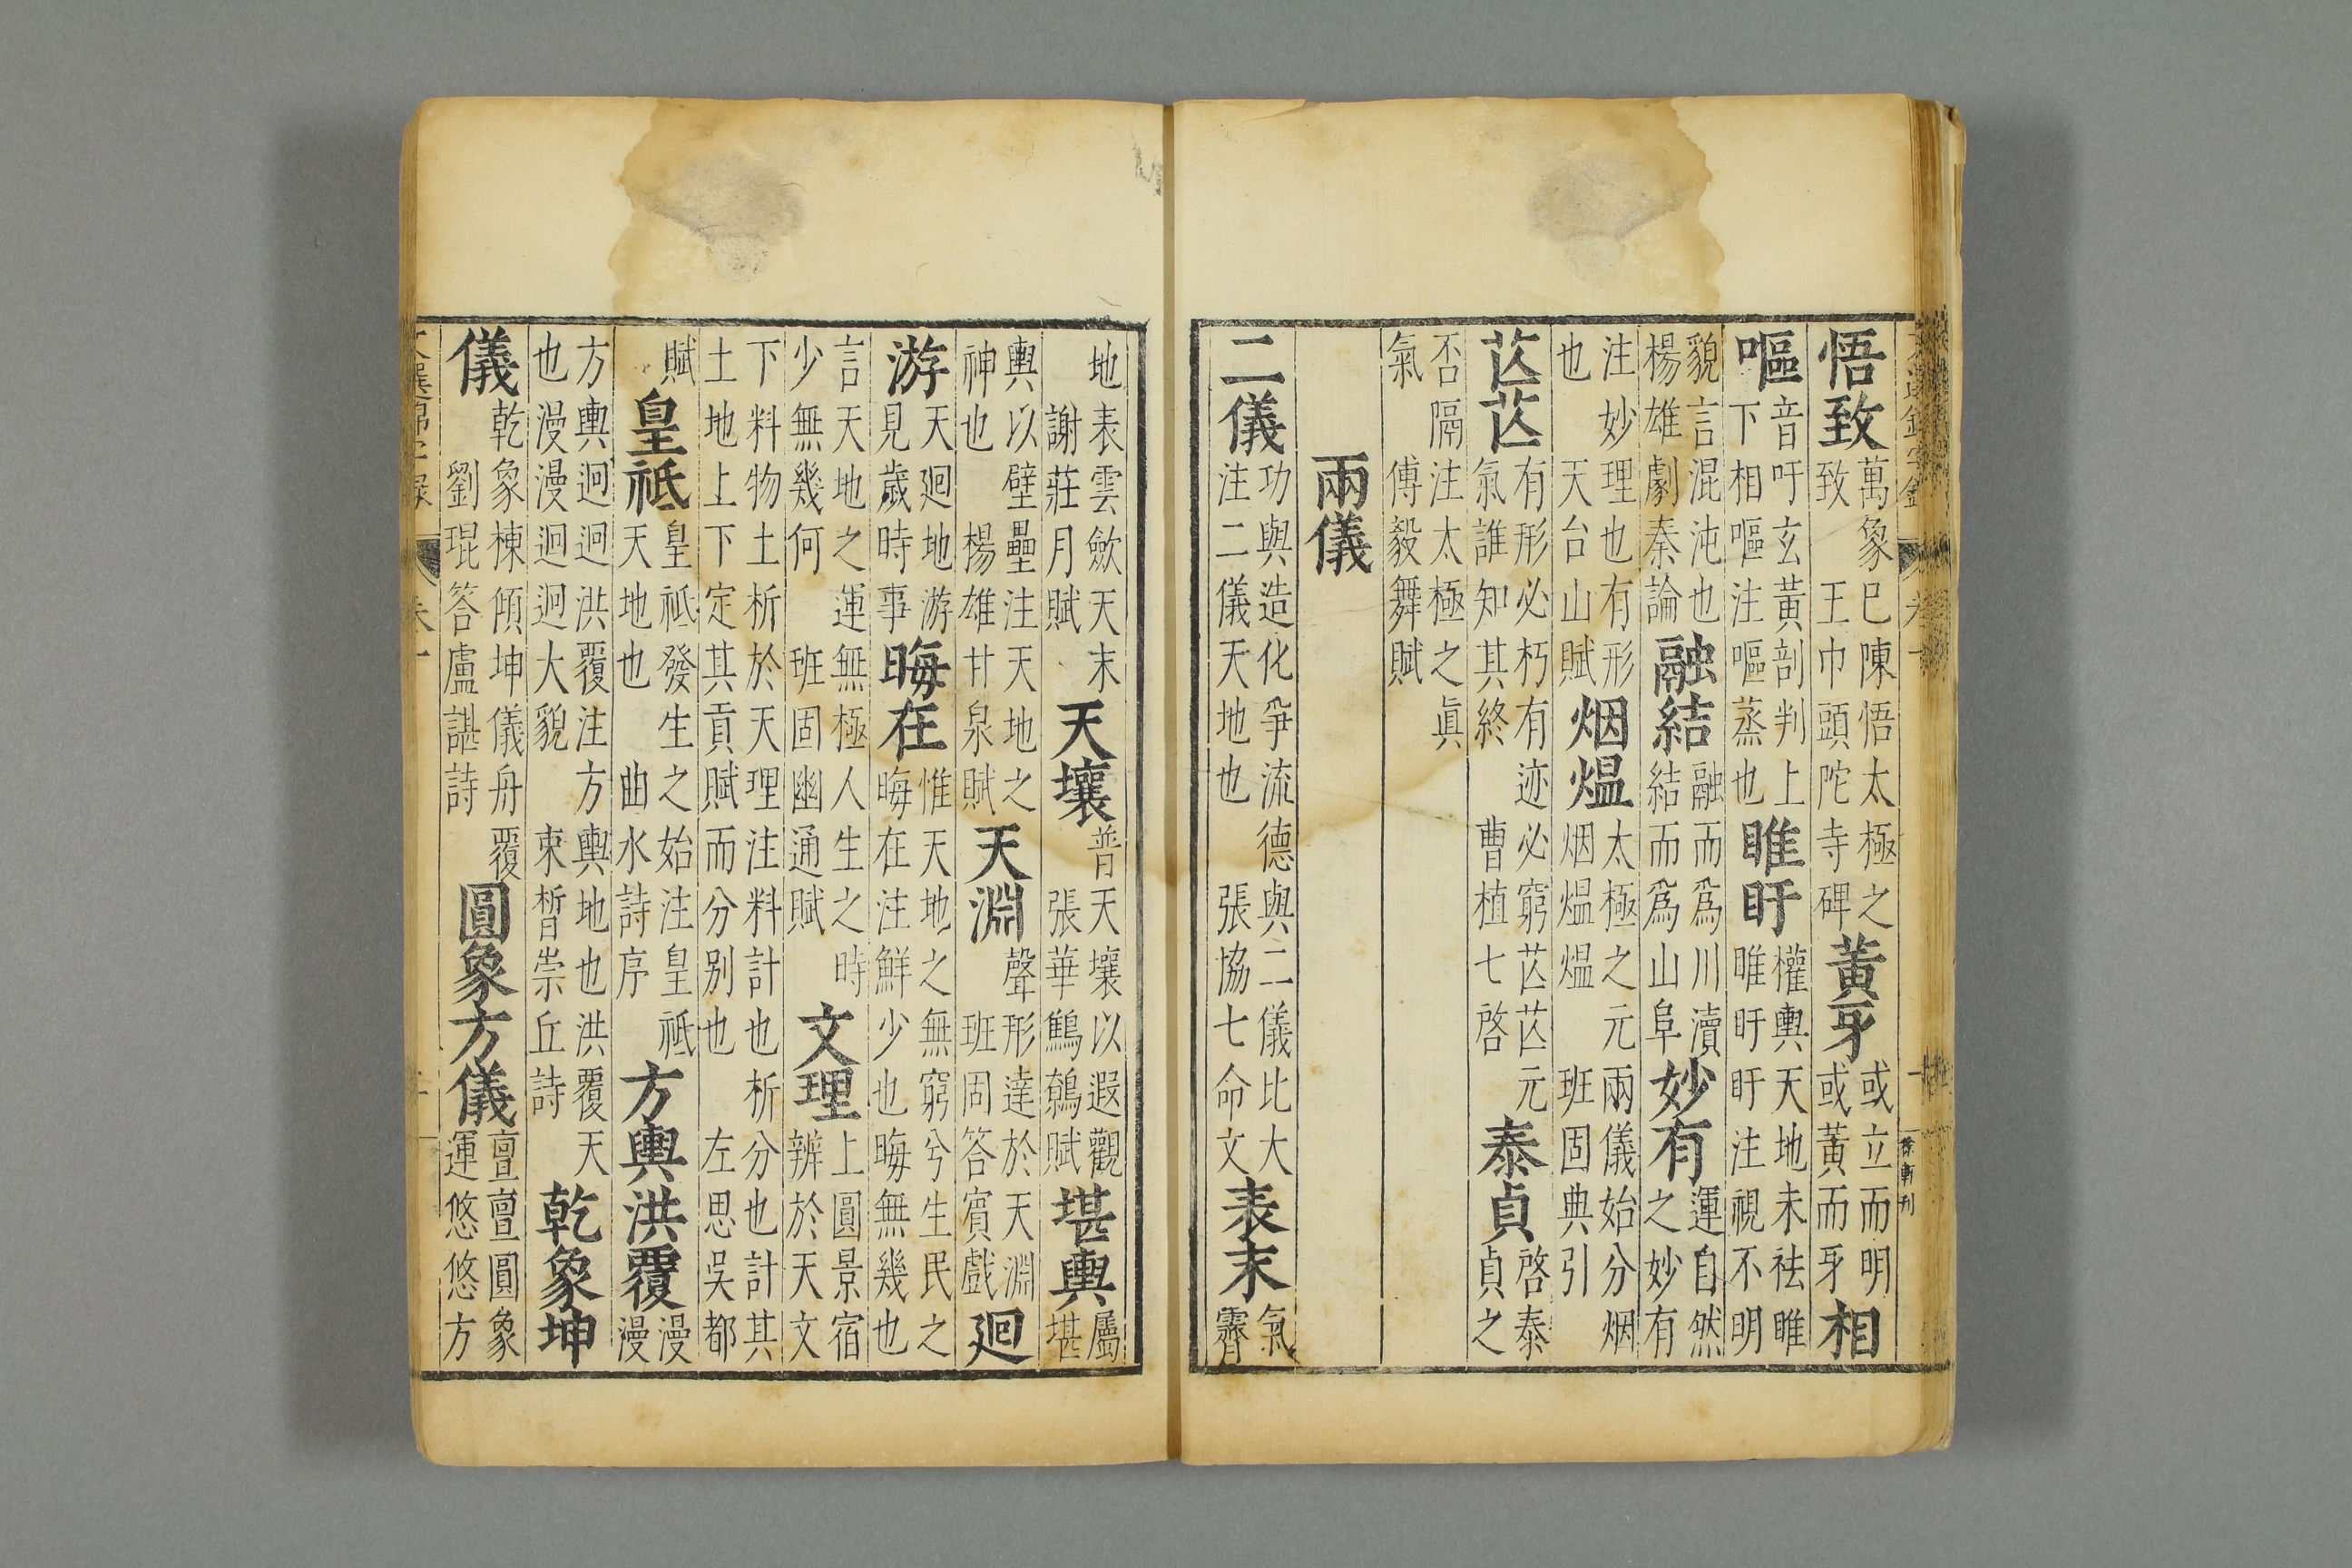 悟致萬象已陳悟太極之致 王巾頭陀寺碑黃牙或立而明或黃而牙相
嘔音吁玄黃剖判上下相嘔注嘔蒸也睢盱權輿天地未祛睢睢盱盱注視不明
貌言混沌也 楊雄劇秦論融結融而爲川瀆結而爲山阜妙有運自然之妙有
注妙理也有形也 天台山賦烟熅太極之元兩儀始分烟烟熅熅 班固典引
芒芒有形必朽有迹必窮芒芒元氣誰知其終 曹植七啓泰貞啓泰貞之
否隔注太極之眞氣 傅毅舞賦
兩儀
二儀功與造化爭流德與二儀比大注二儀天地也 張協七命文表末氣霽
地表雲斂天末 謝莊月賦天壤普天壤以遐觀 張華鷦鷯賦堪輿屬堪
輿以壁壘注天地之神也 楊雄甘泉賦天淵聲形達於天淵 班固答賓戲迴
游天迴地游見歲時事晦在惟天地之無窮兮生民之晦在注鮮少也晦無幾也
言天地之運無極人生之時少無幾何 班固幽通賦文理上圓景宿辨於天文
下料物土析於天理注料計也析分也計其土地上下定其貢賦而分別也 左思吳都
賦皇祇皇祇發生之始注皇祇天地也 曲水詩序方輿洪覆漫漫
方輿迥迥洪覆注方輿地也洪覆天也漫漫迥迥大貌 束晳崇丘詩乾象坤
儀乾象棟傾坤儀舟覆 劉琨答盧諶詩圓象方儀亶亶圓象運悠悠方